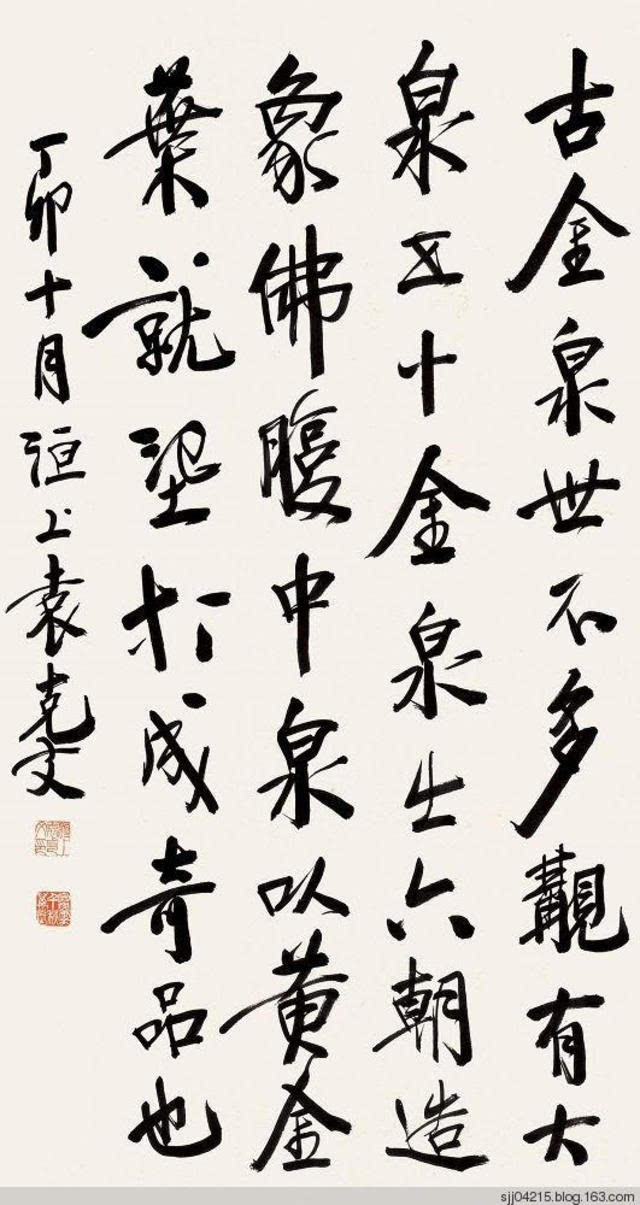 古金泉世不多覯有大
泉五十金泉出六朝造
象佛腹中泉以黄金
葉就於成奇品也
丁卯十月洹上袁克文
sjj04215.blog.163.com